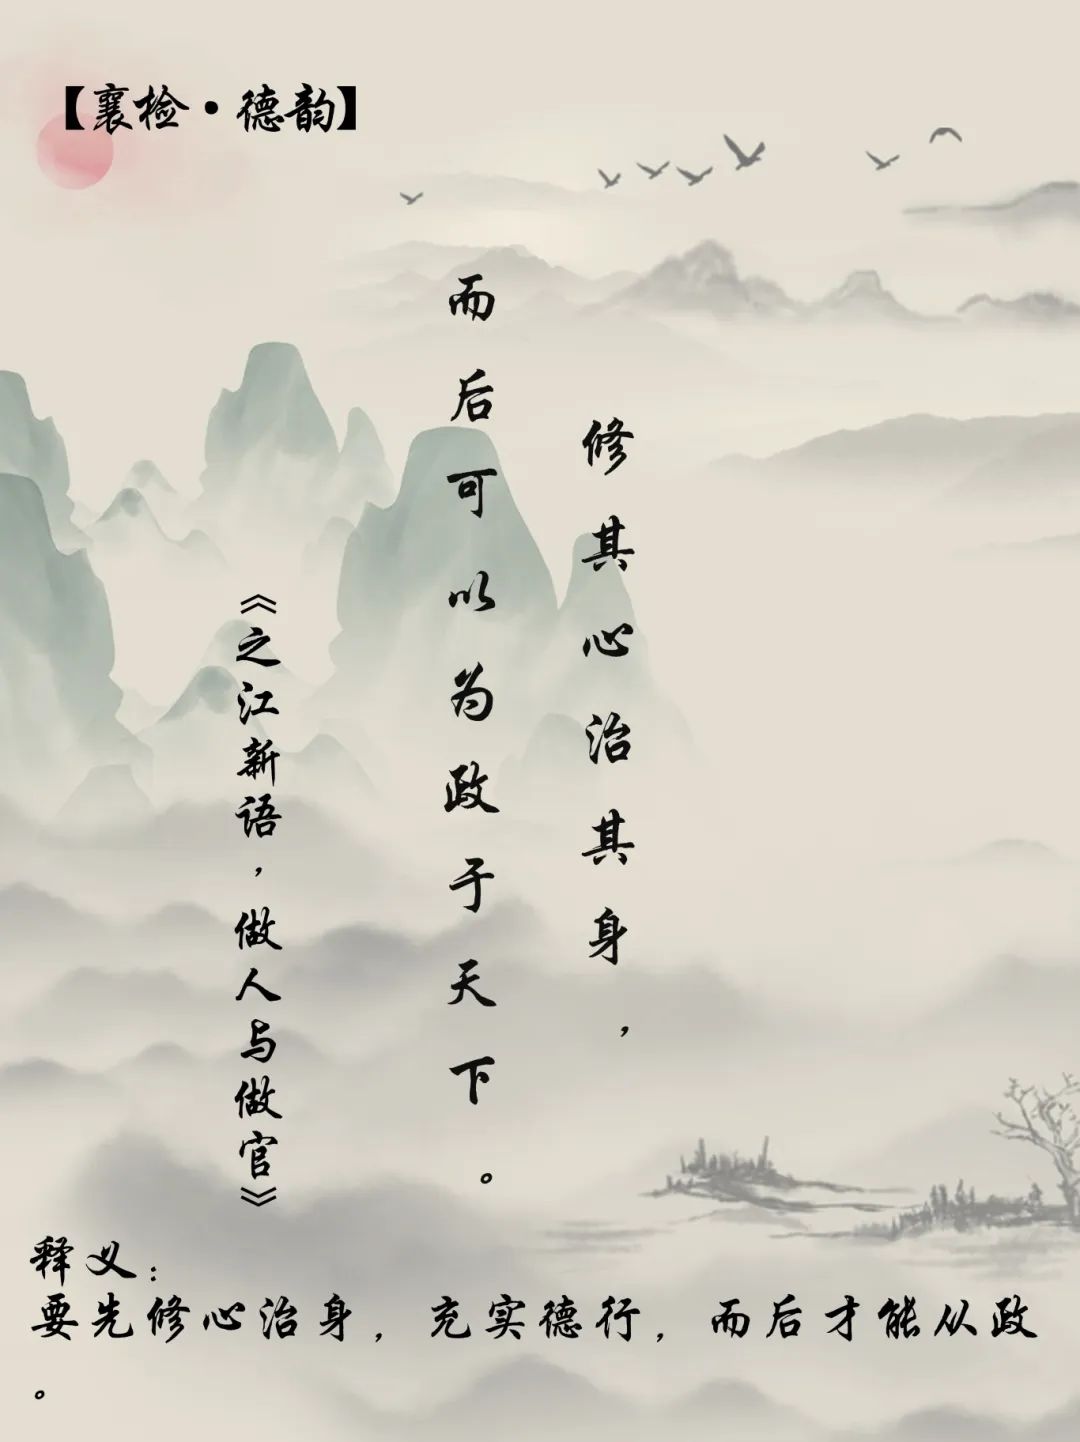 【襄检·德韵】
修其心治其身，
而后可以为政于天下。
《之江新语，做人与做官》
释义：
要先修心治身，充实德行，而后才能从政
。